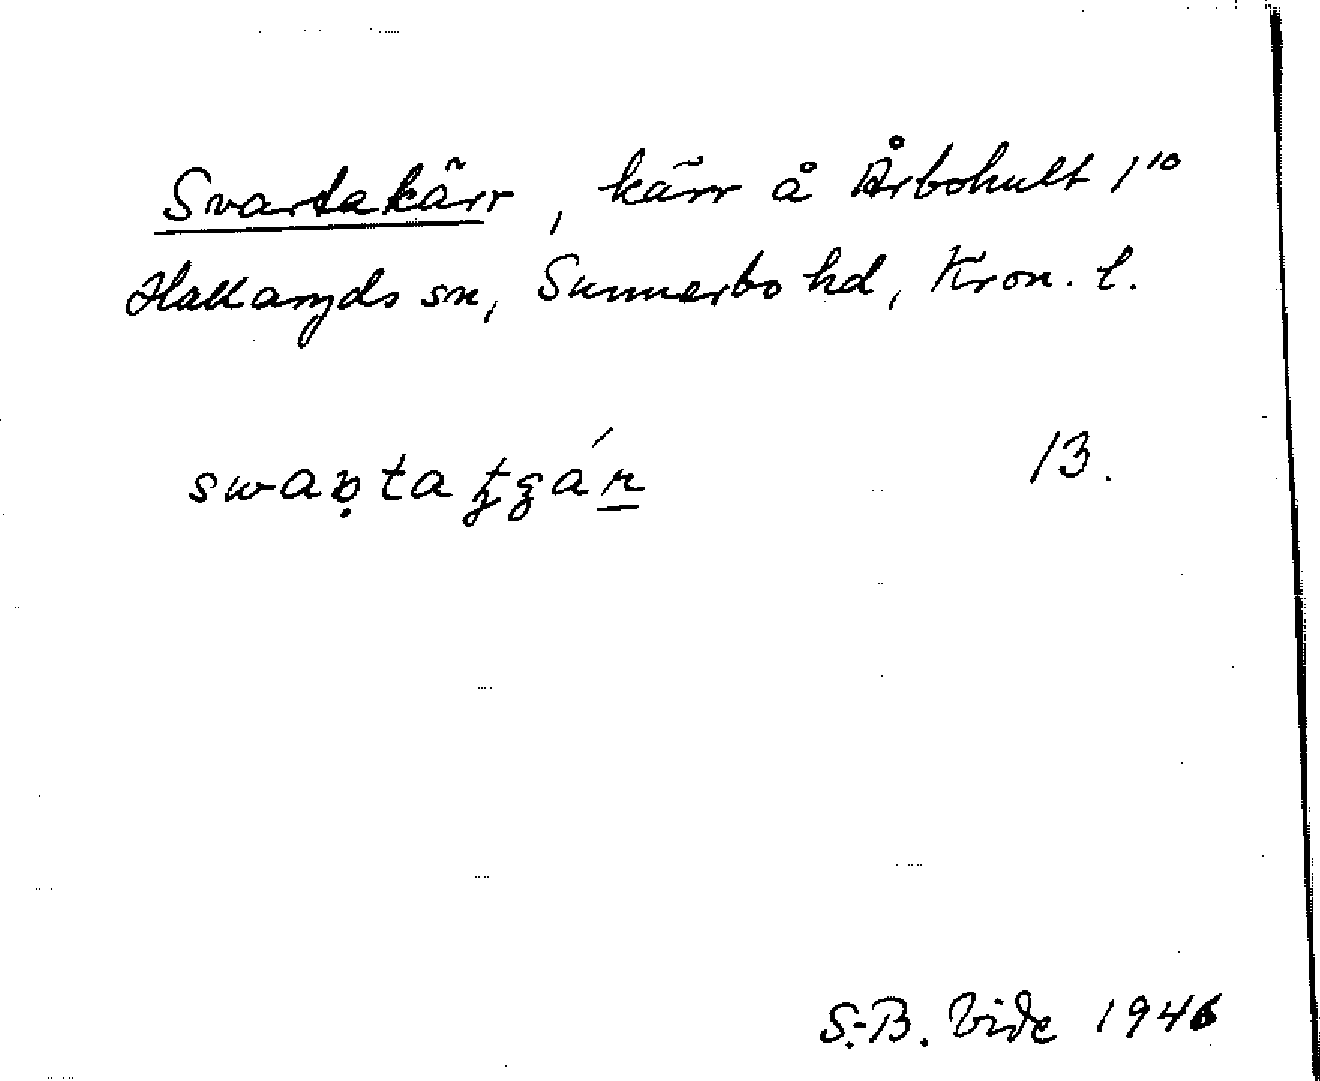 Svartakärr, kärr å Årbohult 1¹⁰
Hallaryds sn, Sunnerbo hd, Kron. l.
13.
S.-B. Vide 1946